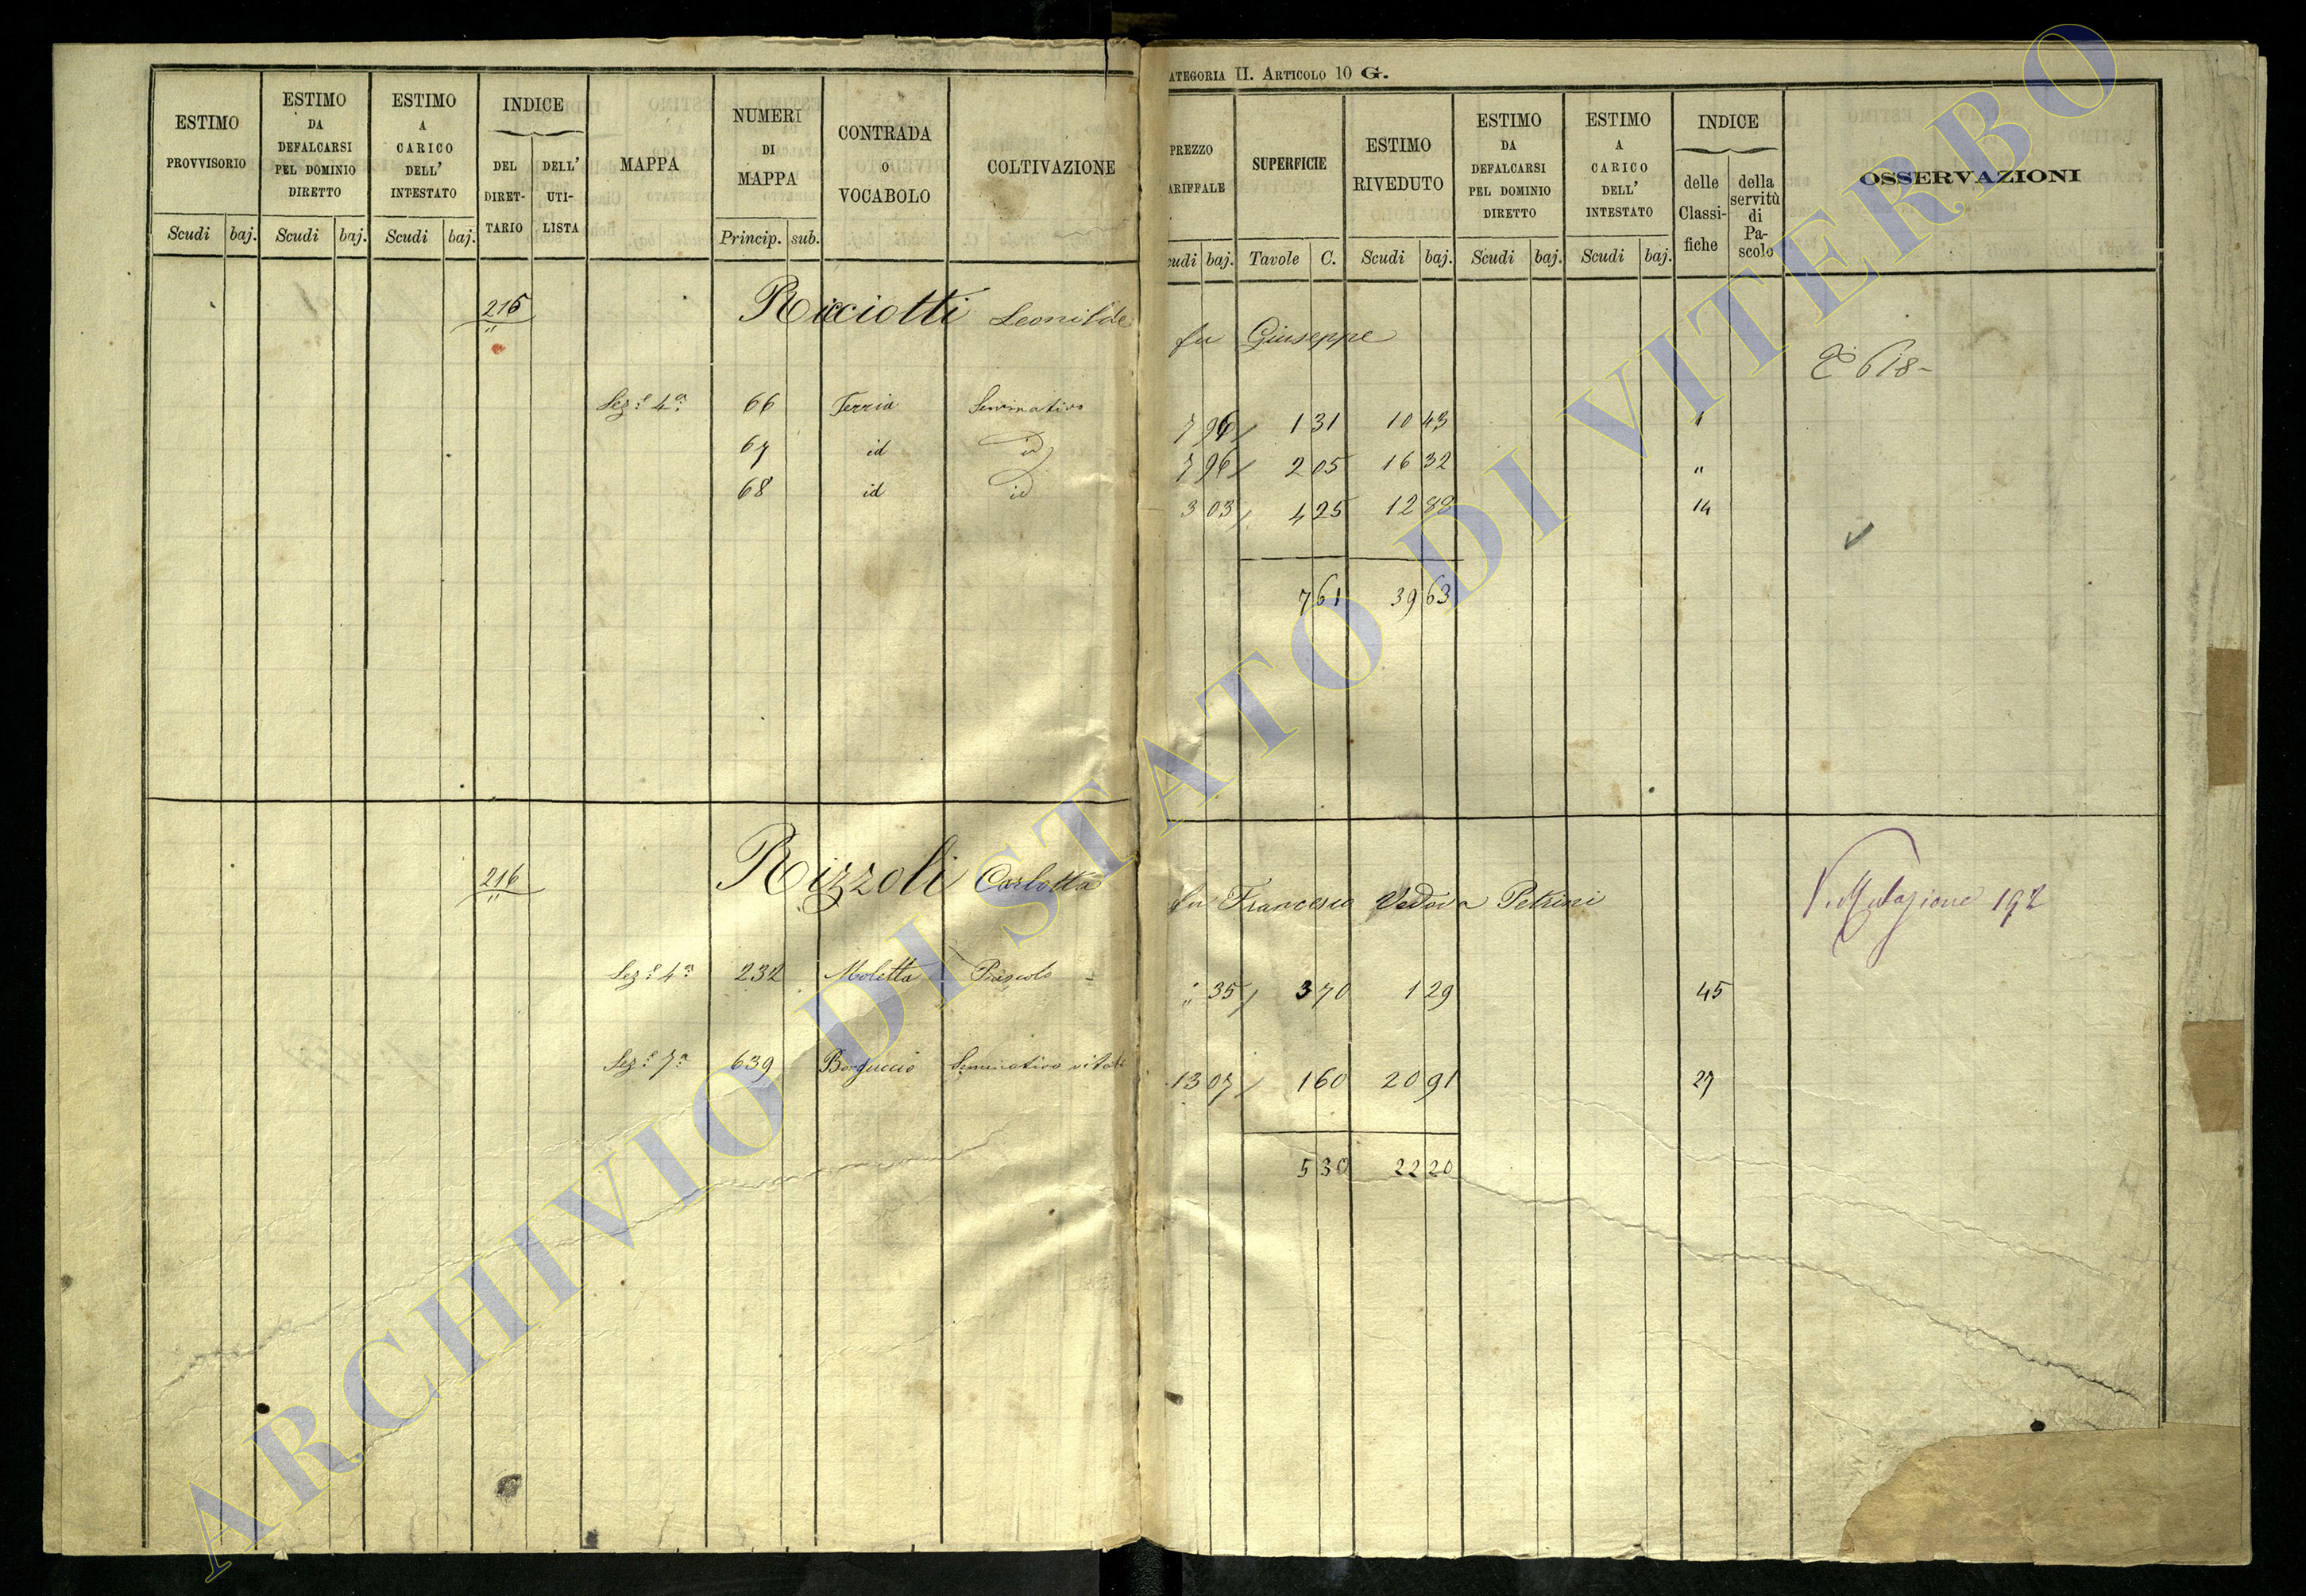 ATEGORIA II. ARTICOLO 10 G.
ESTIMO PROVVISORIO Scudi baj.
ESTIMO DA DEFALCARSI PEL DOMINIO DIRETTO Scudi baj.
ESTIMO A CARICO DELL' INTESTATO Scudi baj.
INDICE DEL DIRET-TARIO DELL' UTI-LISTA
MAPPA
NUMERI DI MAPPA Princip. sub.
CONTRADA O VOCABOLO
COLTIVAZIONE
PREZZO ARIFFALE cudi baj.
SUPERFICIE Tavole C.
ESTIMO RIVEDUTO Scudi baj.
ESTIMO DA DEFALCARSI PEL DOMINIO DIRETTO Scudi baj.
ESTIMO A CARICO DELL' INTESTATO Scudi baj.
INDICE delle Classi-fiche della servitù di Pa-scolo
OSSERVAZIONI
215 Ricciotti Leonilde fu Giuseppe
618
Sez.e 4a 66 Terria Seminativo 7 96 1 31 10 43
67 id id 7 96 2 05 16 32 "
68 id id 3 03 4 25 12 88 14
7 61 39 63
216 Rizzoli Carlotta fu Francesco Vedova Petrini
V. Mutazione 192
Sez.e 4a 232 Moletta Pascolo " 35 3 70 1 29 45
Sez.e 7a 639 Borguccio Seminativo vitato 13 07 1 60 20 91 27
5 30 22 20
ARCHIVIO DI STATO DI VITERBO